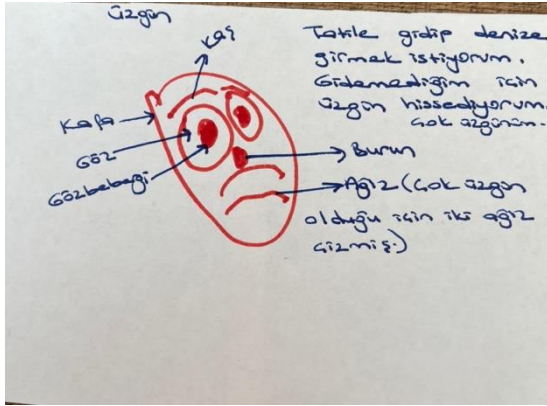 üzgün
Tatile gidip denize
girmek istiyorum.
Gidemediğim için
üzgün hissediyorum.
Çok üzgünüm.
Kaş
Kafa
Göz
Gözbebeği
Burun
Ağız (Çok üzgün
olduğu için iki ağız
çizmiş.)